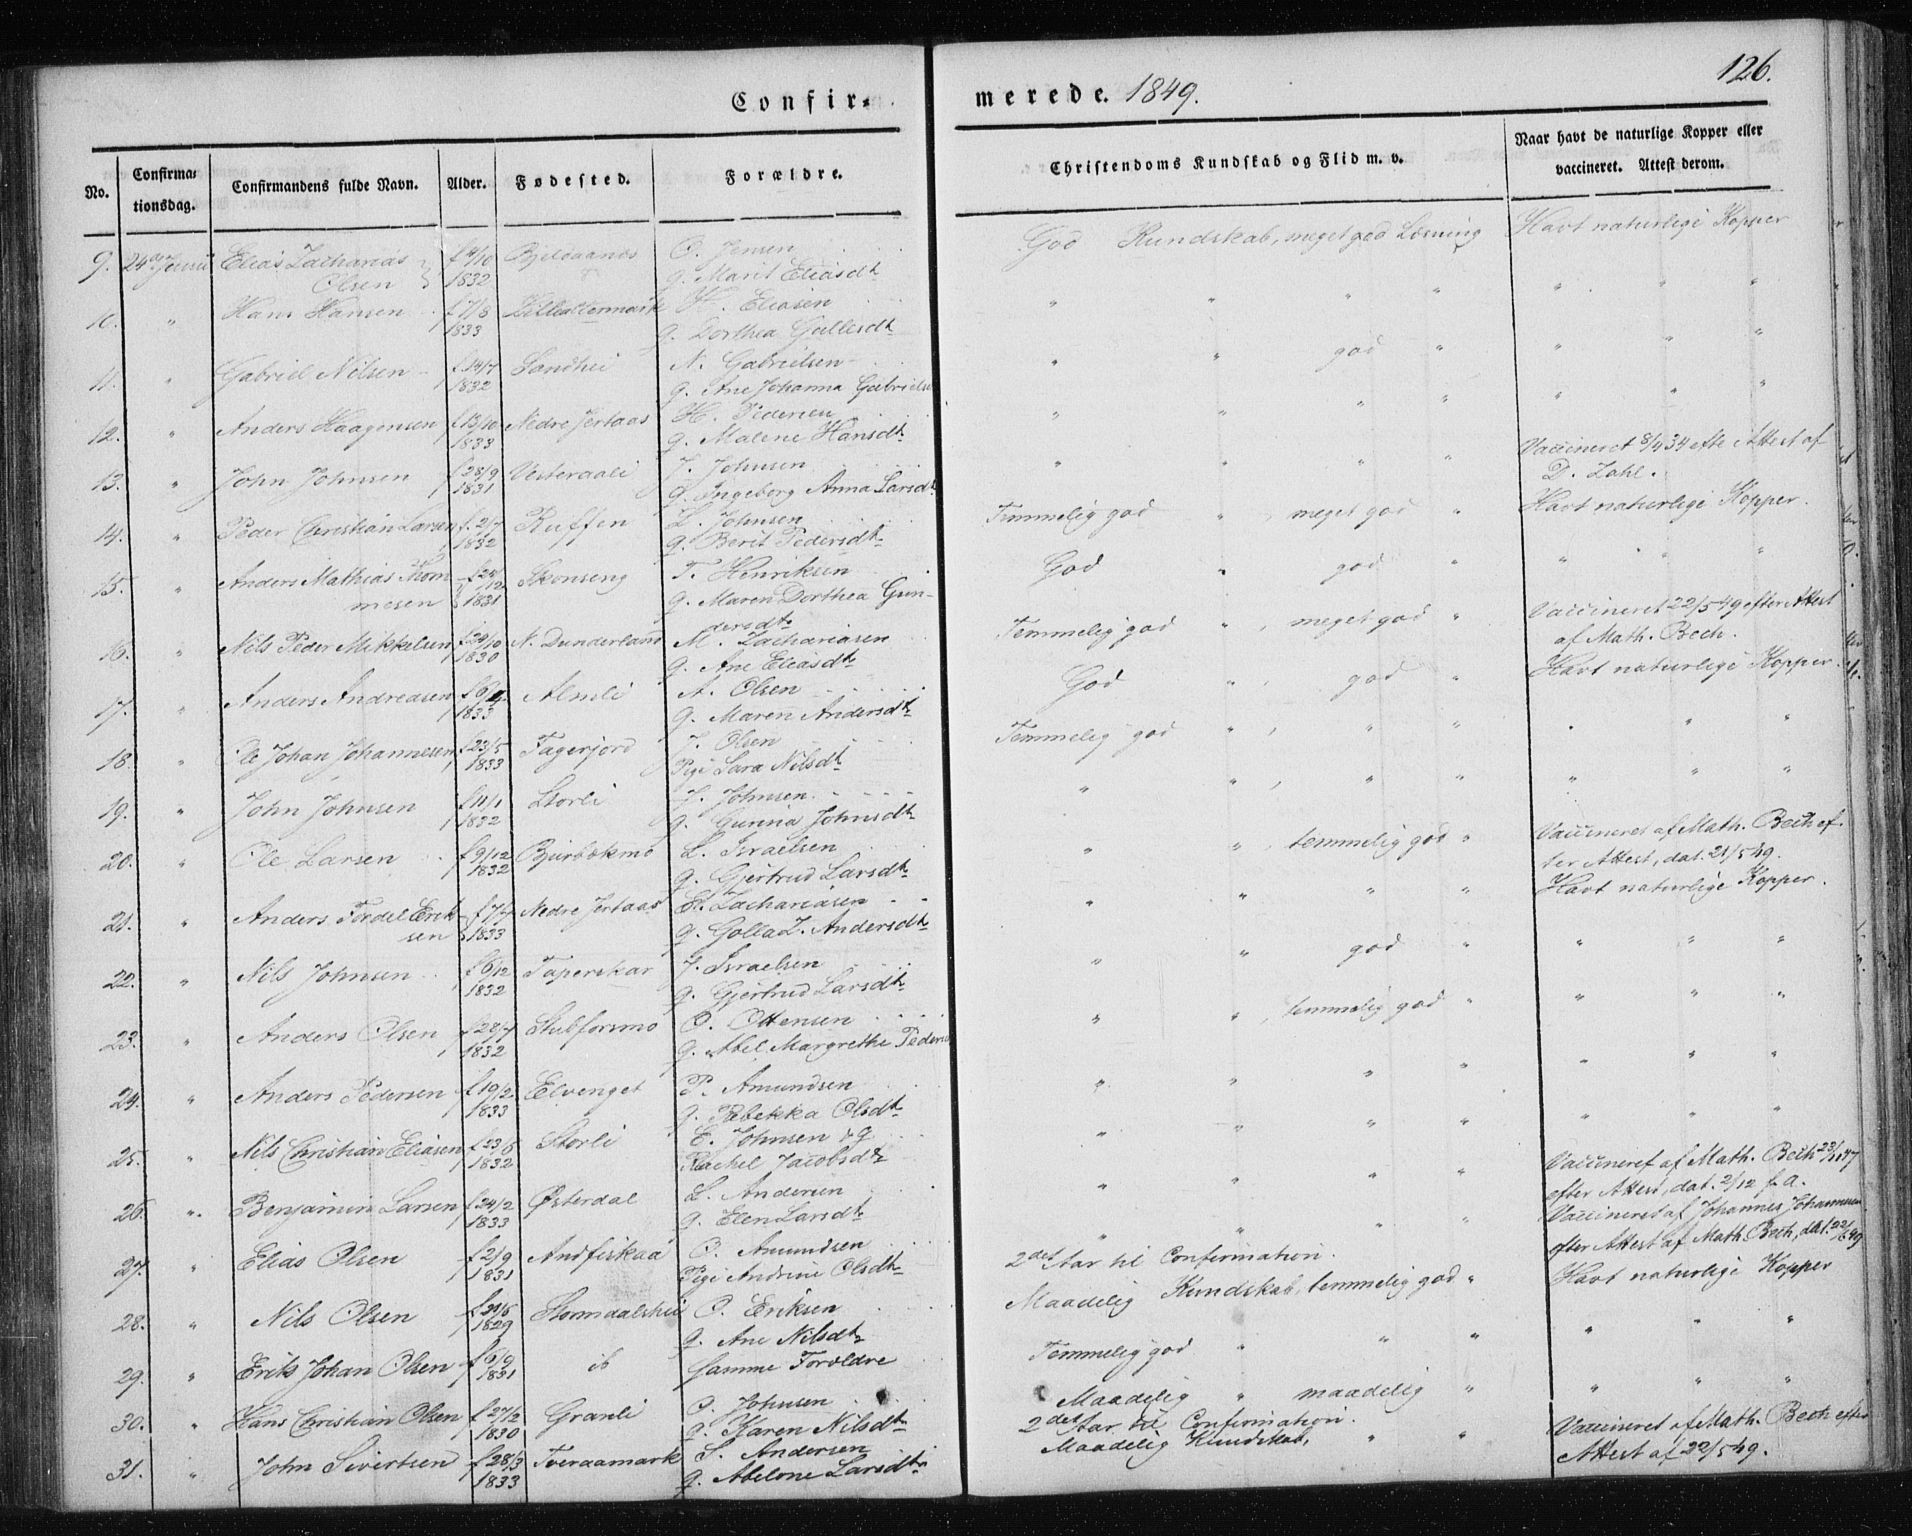 126.
Confir- merede. 1849.
No. Confirma- tionsdag. Confirmandens fulde Navn. Alder. Fødested. Forældre. Christendoms Kundskab og Flid m. v. Naar havt de naturlige Kopper eller vaccineret. Attest derom.
9. 24de Juni Elias Zacharias f 4/10 Bjeldaanes O. Jensen God Kundskab, meget god Læsning Havt naturlige Kopper
Olsen 1832 g. Marit Eliasdt
10. " Hans Hansen f 7/8 Lilleattermark H. Eliasen " " " " " " "
1833 g. Dorthea Gullesdt
11. " Gabriel Nilsen f 14/7 Sandhei N. Gabrielsen " " god " " " "
1832 g. Ane Johanna Gabrielsd
12. " Anders Haagensen f 13/10 Nedre Jertaas H. Pedersen " " " " " " "
1833 g. Malene Hansdt
13. " John Johnsen f 28/9 Vesteraali J. Johnsen " " " " Vaccineret 8/4 34 efte Attest af
1831 g. Ingeborg Anna Larsdt D. Zahl.
14. " Peder Christian Larsen f 2/7 Ruffen L. Johnsen Temmelig god " , meget god " Havt naturlige Kopper.
1832 g. Berit Pedersdt
15. " Anders Mathias Thom f 24/12 Skonseng T. Henriksen God " god " " " " "
mesen 1831 g. Maren Dorthea Gun-
dersdt
16. " Nils Peder Mikkelsen f 20/10 N. Dunderland M. Zachariasen Temmelig god " , meget god " Vaccineret 22/5 49 efter Attest
1830 g. Ane Eliasdt af Math. Bech.
17. " Anders Andreasen f 6/4 Almli A. Olsen God " , god " Havt naturlige Kopper.
1833 g. Maren Andersdt
18. " Ole Johan Johannesen f 23/5 Fagerjord J. Olsen Temmelig god " , " " " " "
1833 Pige Sara Nilsdt
19. " John Johnsen f 11/1 Storli J. Johnsen " " , " " " " "
1832 g. Gurina Johnsdt
20. " Ole Larsen f 9/12 Bjurbækmo L. Israelsen " " , temmelig god " Vaccineret af Math. Bech ef-
1832 g. Gjertrud Larsdt ter Attest, dat. 21/5 49.
21. " Anders Fordel Erik f 7/7 Nedre Jertaas E. Zachariasen " " " " Havt naturlige Kopper.
sen 1833 g. Golla Z. Andersdt
22. " Nils Johnsen f 6/12 Taperskar J. Israelsen " " god " " " "
1832 g. Gjertrud Larsdt
23. " Anders Olsen f 28/7 Stubforsmo O. Ottensen " " , temmelig god " " " "
1832 g. Abel Margrethe Peders
24. " Anders Pedersen f 19/2 Elvenget P. Amundsen " " " " " " "
1833 g. Rebekka Olsdt
25. " Nils Christian Eliasen f 23/6 Storli E. Johnsen & g " " " " " " "
1832 Rachel Jacobsdt
26. " Benjamin Larsen f 24/2 Østerdal L. Andersen " " " " Vaccineret af Math. Bech 23/11 47
1833 g. Elen Larsdt efter Attest, dat. 2/12 f. A.
27. " Elias Olsen f 2/9 Andfiskaa O. Amundsen " " " " Vaccineret af Johannes Johannesen
1831 Pige Andrine Olsdt efter Attest af Math. Bech, dat. 22/6 49
28. " Nils Olsen f 30/6 Stormdalshei O. Eriksen 2det Aar til Confirmation. Maadelig Kundskab, temmelig god " Havt naturlige Kopper
1829 g. Ane Nilsdt
29. " Erik Johan Olsen f 6/9 ib Samme Forældre Temmelig god " " " " " "
1831
30. " Hans Christian Olsen f 27/2 Granli O. Johnsen Maadelig " maadelig " " " "
1830 g. Karen Nilsdt
31. " John Sivertsen f 28/3 Tveraamark S. Andersen 2det Aar til Confirmation. Maadelig Kundskab, " " Vaccineret af Math. Bech efter
1833 g. Abelone Larsdt Attest af 22/5 49.